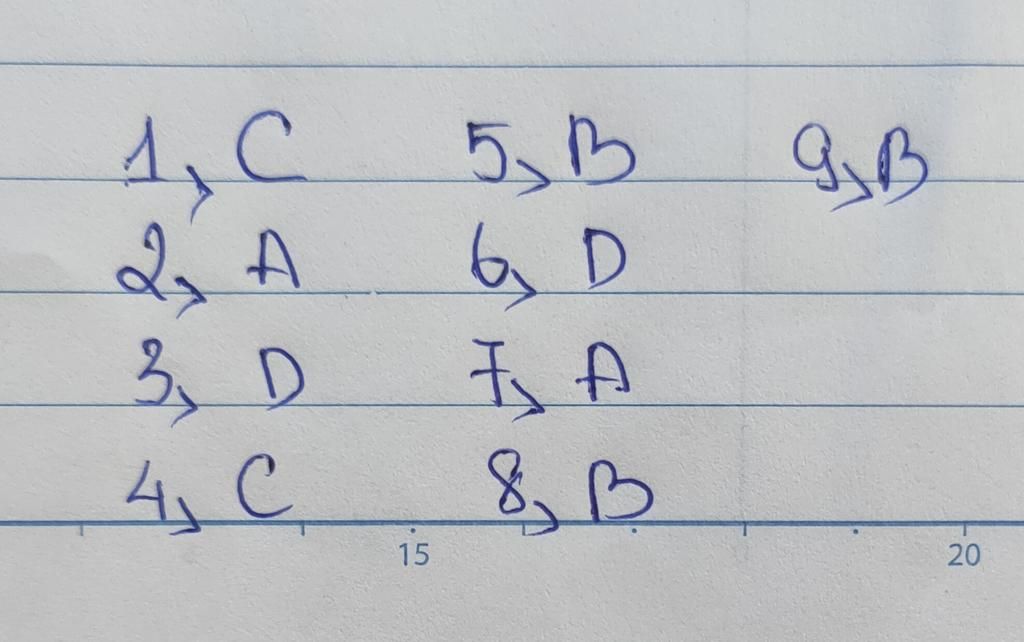 1, C 5, B 9, B
2, A 6, D
3, D 7, A
4, C 8, B
15 20